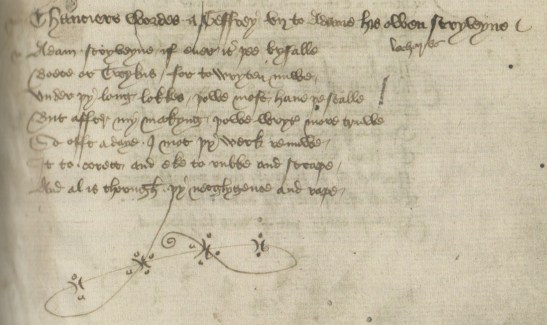 Chauciers wordes . a Geffrey vn to Adame his owen scryveyne
Adam . scryveyne if euer it þee byfalle
Boece or Troylus / for to wryten nuwe /
Vnder þy long lokkes / þowe most haue þe scalle
But affter my makyng / þowe wryte more truwe
So offt adaye . I mot þy werk renuwe /
It to . corect and eke to rubbe and scrape /
And al is thorugh . þy necglygence and rape /